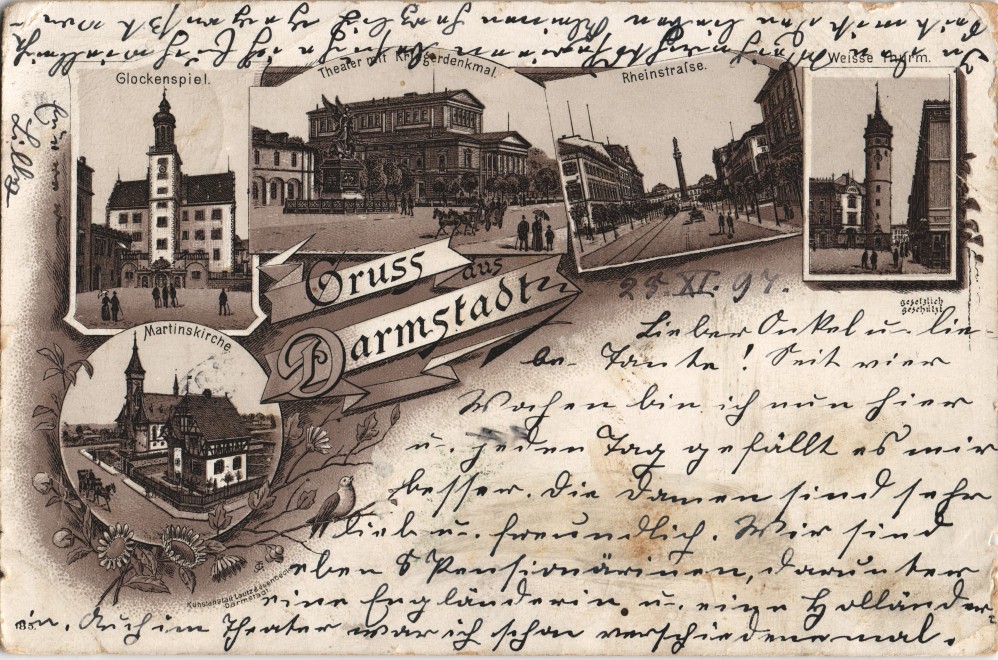 Glockenspiel.
Theater mit Kriegerdenkmal.
Rheinstraße.
Weisse Thurm.
Gruss aus
Darmstadt
Martinskirche.
gesetzlich
geschützt.
25 XI. 97.
Lieber Onkel u. lie-
be Tante! Seit vier
Wochen bin ich nun hier
u. jeden Tag gefällt es mir
besser. Die Damen sind sehr
lieb u. freundlich. Wir sind
eben 8 Pensionärinnen, darunter
eine Engländerin u. eine Holländer-
in. Auch im Theater war ich schon verschiedenemal.
Kunstanstalt Lautz & Isenbeck
Darmstadt.
185.
In den Weihnachtsferien